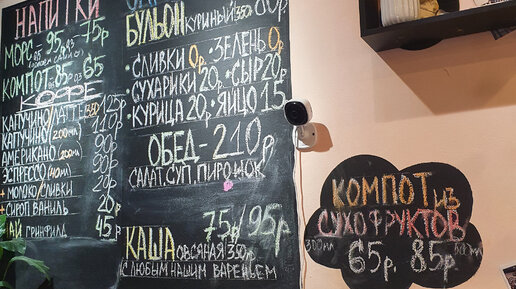 НАПИТКИ
МОРС - 95р 75р
КОМПОТ 85р 65
КОФЕ
КАПУЧИНО/ЛАТТЕ 350 125р
КАПУЧИНО (200мл) 110р
АМЕРИКАНО (200мл) 90р
ЭСПРЕССО (40мл) 90р
+ МОЛОКО/СЛИВКИ 20р
+ СИРОП ВАНИЛЬ 20р
ЧАЙ ГРИНФИЛД 45р
БУЛЬОН КУРИНЫЙ 350 80р
·СЛИВКИ 0р ·ЗЕЛЕНЬ 0р
·СУХАРИКИ 20р ·СЫР 20р
·КУРИЦА 20р ·ЯЙЦО 15р
ОБЕД - 210р
САЛАТ, СУП, ПИРОЖОК
75р/95р
КАША ОВСЯНАЯ 350р
С ЛЮБЫМ НАШИМ ВАРЕНЬЕМ
КОМПОТ ИЗ
СУХОФРУКТОВ
300мл 65р. 85р.